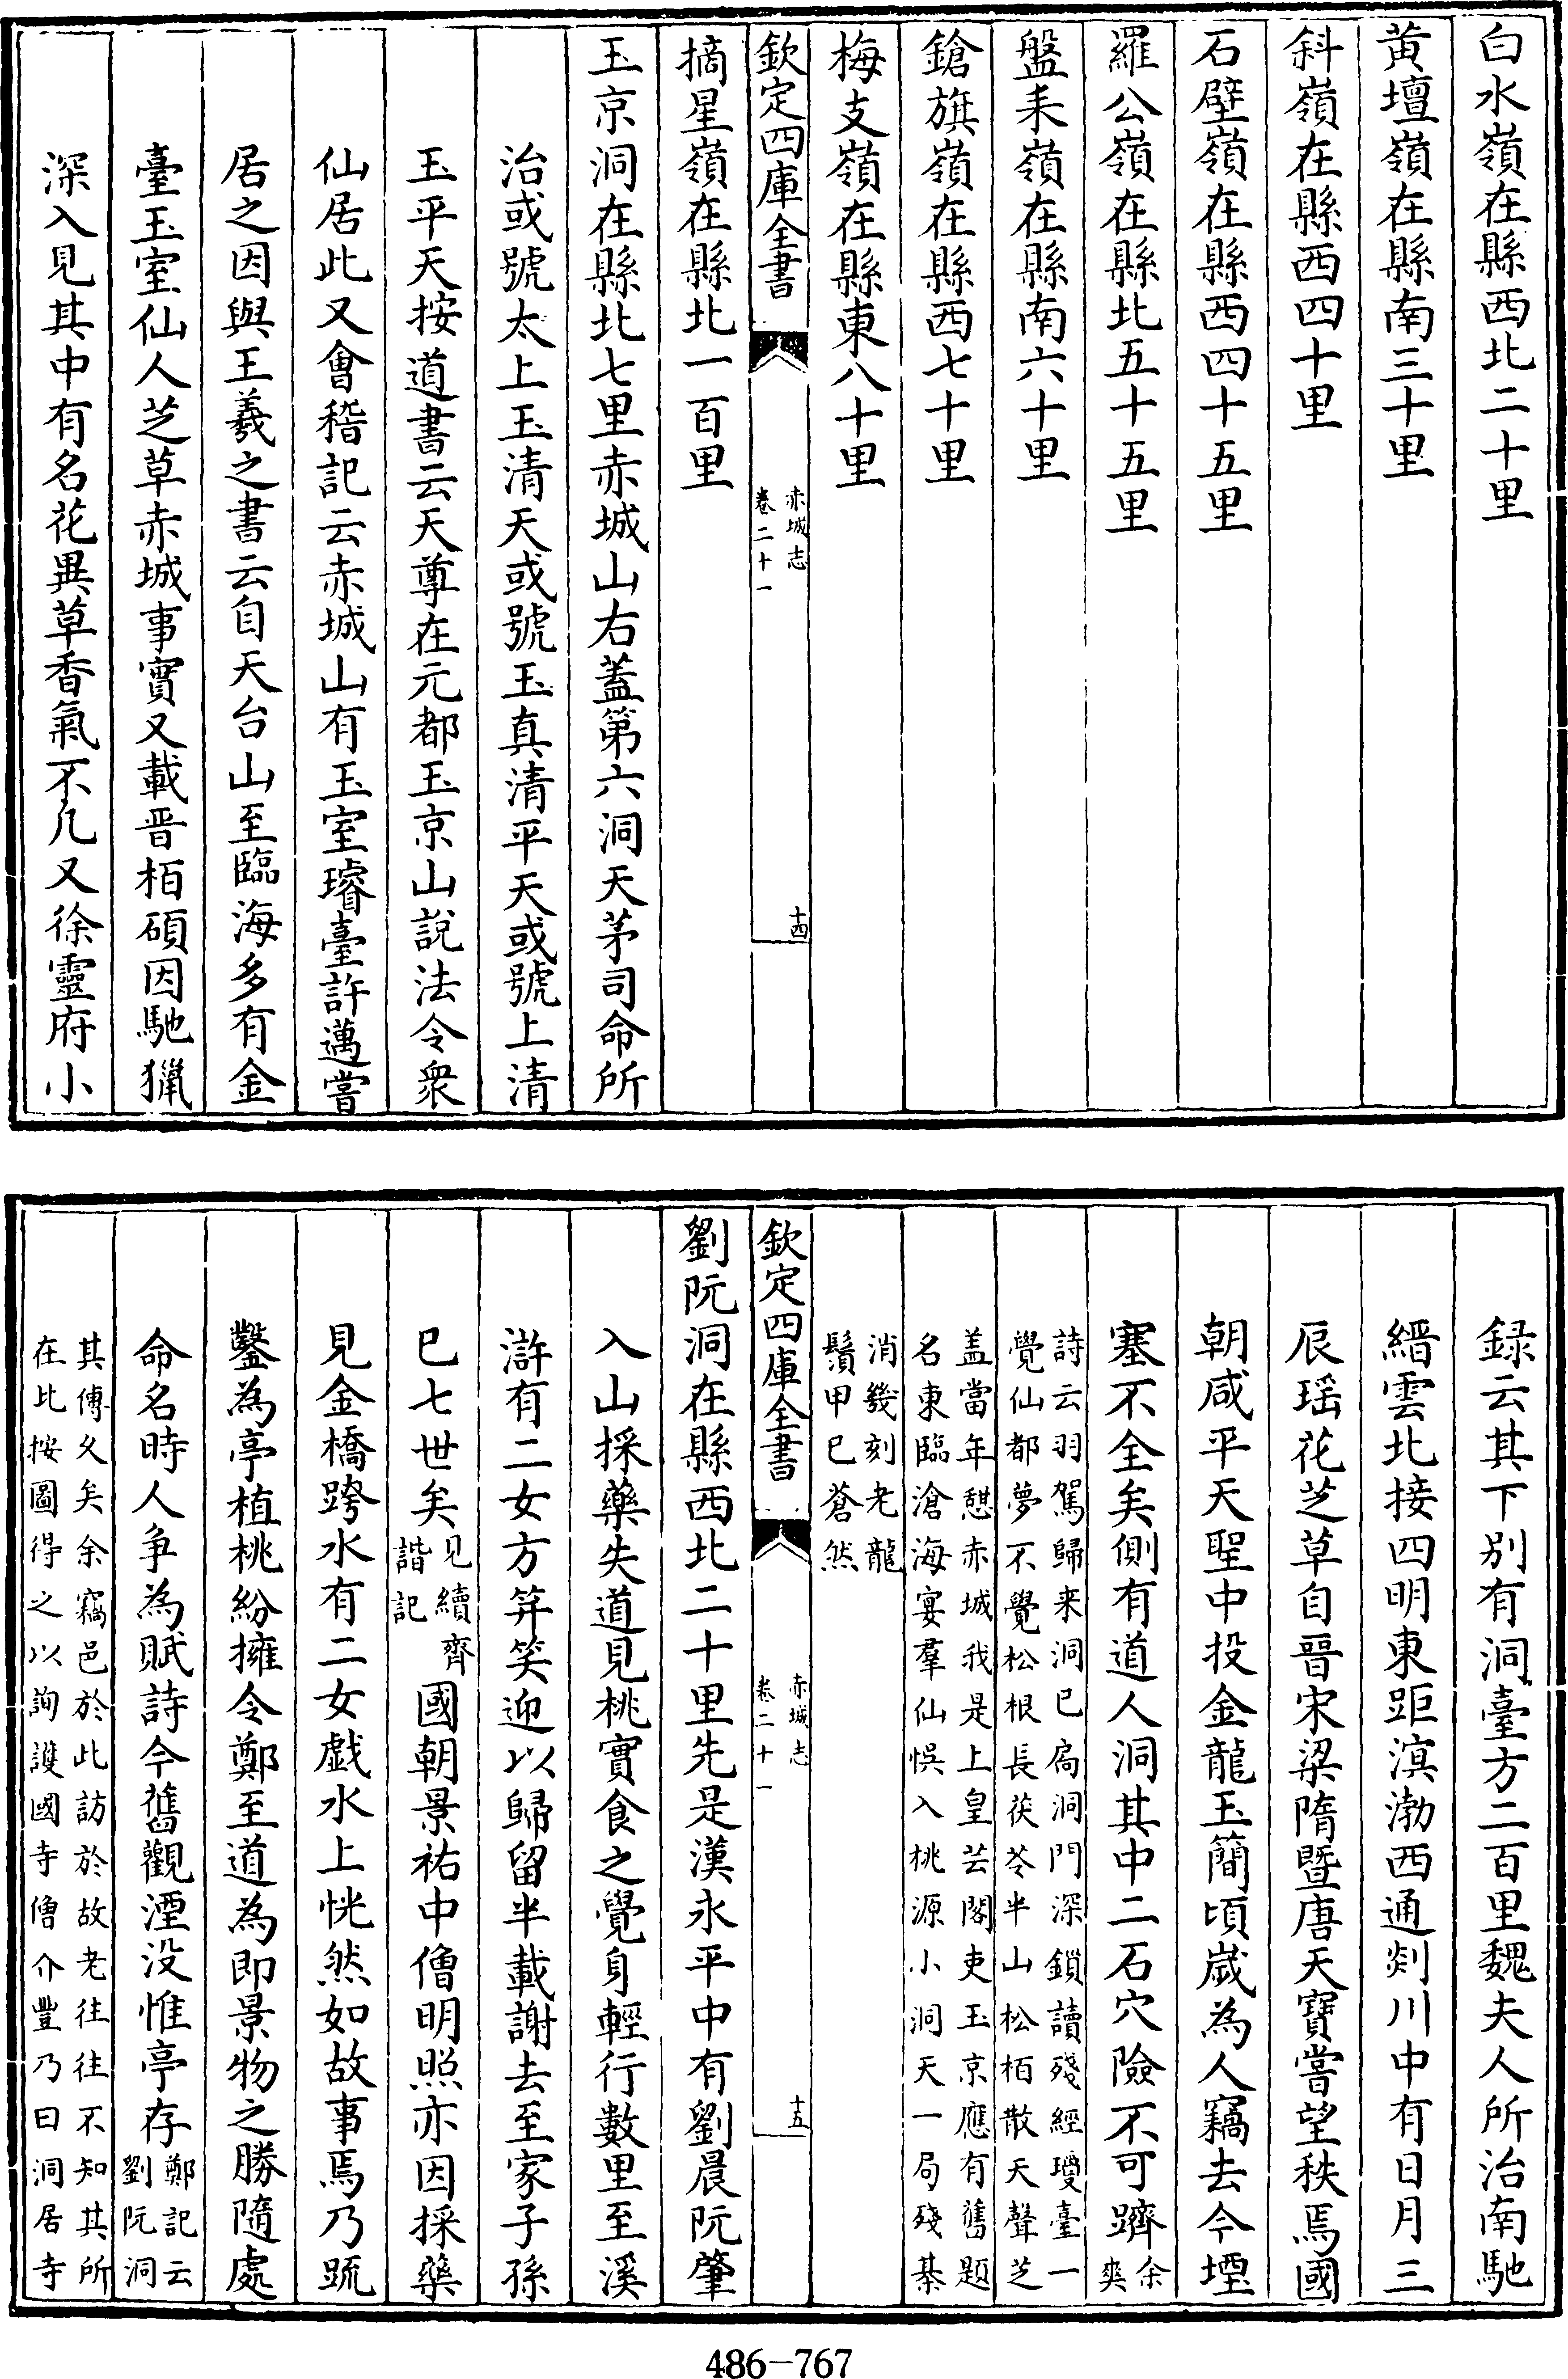 白水嶺在縣西北二十里
黄壇嶺在縣南三十里
斜嶺在縣西四十里
石壁嶺在縣西四十五里
羅公嶺在縣北五十五里
盤耒嶺在縣南六十里
鎗旗嶺在縣西七十里
梅支嶺在縣東八十里
欽定四庫全書
赤城志
卷二十一
十四
摘星嶺在縣北一百里
玉京洞在縣北七里赤城山右蓋第六洞天茅司命所
治或號太上玉清天或號玉真清平天或號上清
玉平天按道書云天尊在元都玉京山說法令衆
仙居此又會稽記云赤城山有玉室璿臺許邁嘗
居之因與王羲之書云自天台山至臨海多有金
臺玉室仙人芝草赤城事實又載晉栢碩因馳獵
深入見其中有名花異草香氣不凡又徐靈府小
録云其下别有洞臺方二百里魏夫人所治南馳
縉雲北接四明東距溟渤西通剡川中有日月三
辰瑶花芝草自晉宋梁隋暨唐天寶嘗望秩焉國
朝咸平天聖中投金龍玉簡頃歲為人竊去今堙
塞不全矣側有道人洞其中二石穴險不可躋
余
爽
詩云羽駕歸来洞已扃洞門深鎖讀殘經瓊臺一
覺仙都夢不覺松根長茯苓半山松栢散天聲芝
盖當年憇赤城我是上皇芸閣吏玉京應有舊題
名東臨滄海宴羣仙悞入桃源小洞天一局殘棊
消幾刻老龍
鬚甲已蒼然
欽定四庫全書
赤城志
卷二十一
十五
劉阮洞在縣西北二十里先是漢永平中有劉晨阮肇
入山採藥失道見桃實食之覺身輕行數里至溪
滸有二女方笄笑迎以歸留半載謝去至家子孫
已七世矣
見續齊
諧記
國朝景祐中僧明照亦因採藥
見金橋跨水有二女戯水上恍然如故事焉乃䟽
鑿為亭植桃紛擁令鄭至道為即景物之勝隨處
命名時人争為賦詩今舊觀湮没惟亭存
鄭記云
劉阮洞
其傳久矣余竊邑於此訪於故老往往不知其所
在比按圖得之以詢護國寺僧介豐乃曰洞居寺
486-767